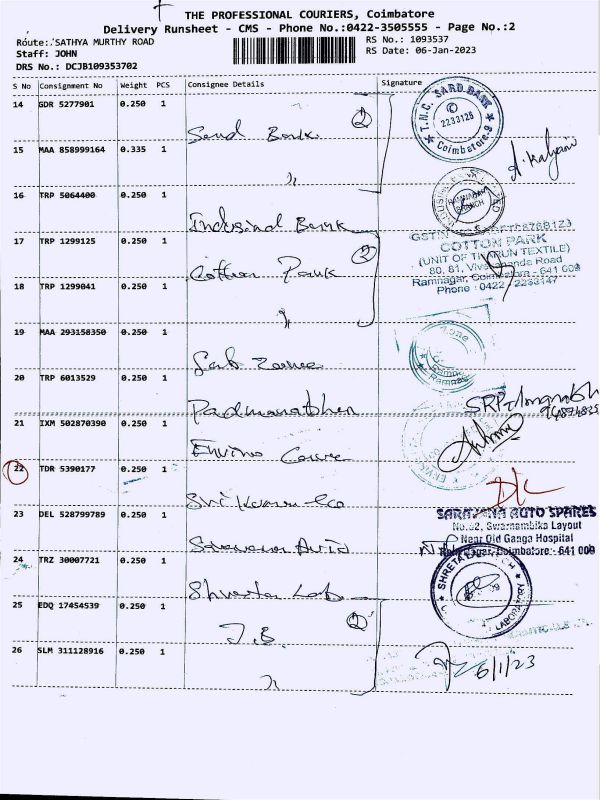 THE PROFESSIONAL COURIERS, Coimbatore
Delivery Runsheet - CMS - Phone No.:0422-3505555 - Page No.:2
Route: SATHYA MURTHY ROAD
RS No.: 1093537
Staff: JOHN
RS Date: 06-Jan-2023
DRS No.: DCJB109353702
S No Consignment No Weight PCS Consignee Details Signature
14 GDR 5277901 0.250 1
Sard Bank 2
T.N.C. SARD BANK
2233125
Coimbatore-9
15 MAA 858999164 0.335 1
〃
A. Kalyani
16 TRP 5064400 0.250 1
Indusind Bank
RAMNAGAR BRANCH
17 TRP 1299125 0.250 1
Cotton Park 2
COTTON PARK
(UNIT OF THARUN TEXTILE)
80, 81, Vivekananda Road
Ramnagar, Coimbatore - 641 009
Phone : 0422 - 2233147
18 TRP 1299041 0.250 1
〃
19 MAA 293158350 0.250 1
Lab Zone
20 TRP 6013529 0.250 1
Padmanabhan
21 IXM 502870390 0.250 1
Enviro Care
22 TDR 5390177 0.250 1
23 DEL 528799789 0.250 1
Saravana Auto
SARAVANA AUTO SPARES
No.62, Swarnambika Layout
Near Old Ganga Hospital
Ramnagar, Coimbatore - 641 009
24 TRZ 30007721 0.250 1
Shreeta Lab
25 EDQ 17454539 0.250 1
J.B. 2
26 SLM 311128916 0.250 1
〃
6/1/23